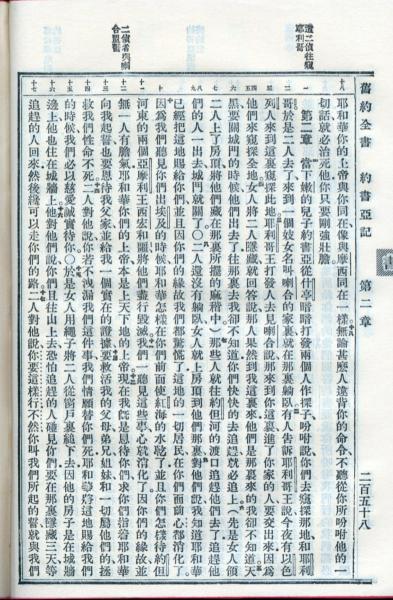 舊約全書 約書亞記 第二章 二百五十八
遣二偵往窺
耶利哥
二偵者與喇
合盟誓
耶和華你的上帝與你同在像與摩西同在一樣無論甚麼人違背你的命令不聽從你所吩咐他的一
切話就必治死他你只要剛強壯膽
第二章 當下嫩的兒子約書亞從什亭暗暗打發兩個人作探子吩咐說你們去窺探那地和耶利
哥於是二人去了來到一個妓女名叫喇合的家裏就在那裏躺臥有人告訴耶利哥王說今夜有以色
列人來到這裏窺探此地耶利哥王打發人去見喇合說那來到你這裏進了你家的人要交出來因為
他們來窺探全地女人將二人隱藏就回答說那人果然到我這裏來他們是那裏來的我卻不知道天
黑要關城門的時候他們出去了往那裏去我卻不知道你們快快的去追趕就必追上(先是女人領
二人上了房頂將他們藏在那裏所擺的麻稭中)那些人就往約但河的渡口追趕他們去了追趕他
們的人一出去城門就關了二人還沒有躺臥女人就上房頂到他們那裏對他們說我知道耶和華
已經把這地賜給你們並且因你們的緣故我們都驚慌了這地的一切居民在你們面前心都消化了
因為我們聽見你們出埃及的時候耶和華怎樣在你們前面使紅海的水乾了並且你們怎樣待約但
河東的兩個亞摩利王西宏和噩將他們盡行毀滅我們一聽見這些事心就消化了因你們的緣故並
無一人有膽氣耶和華你們的上帝本是上天下地的上帝現在我既是恩待你們求你們指著耶和華
向我起誓也要恩待我父家並給我一個實在的證據要救活我的父母弟兄姐妹和一切屬他們的拯
救我們性命不死二人對他說你若不洩漏我們這件事我們情願替你們死耶和華將這地賜給我們
的時候我們必以慈愛誠實待你○於是女人用繩子將二人從窗戶裏縋下去因他的房子是在城牆
邊上他也住在城牆上他對他們說你們且往山上去恐怕追趕的人碰見你們要在那裏隱藏三天等
追趕的人回來然後纔可以走你們的路二人對他說你要這樣行不然你叫我們所起的誓就與我們